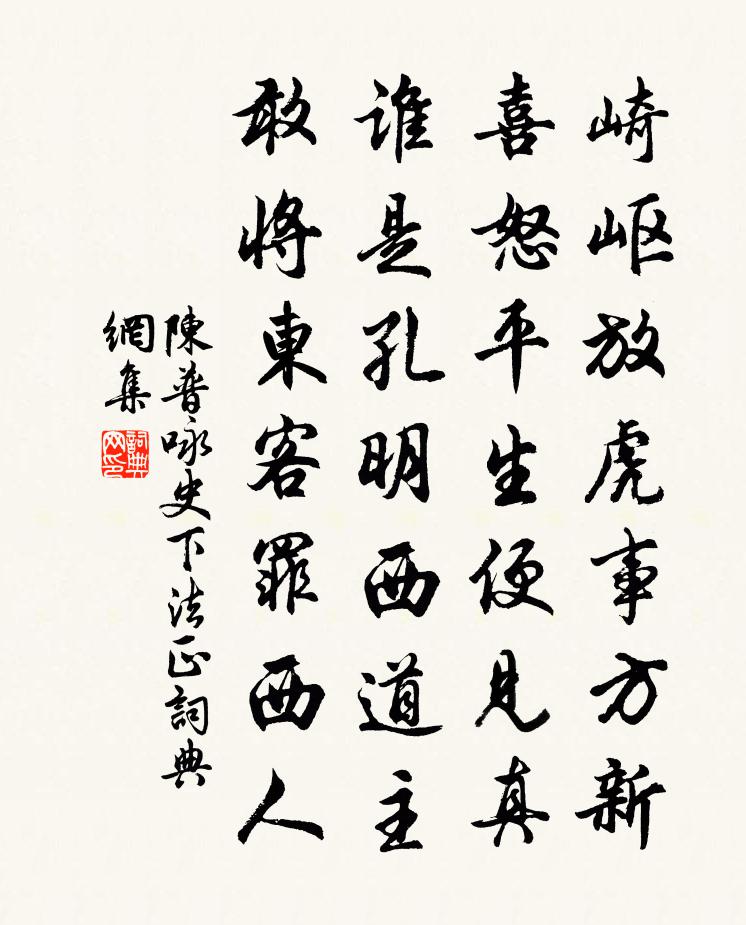 崎岖放虎事方新
喜怒平生便見真
谁是孔明西道主
敢將東客罪西人
陳普咏史下法正詞典
網集
詞典網印